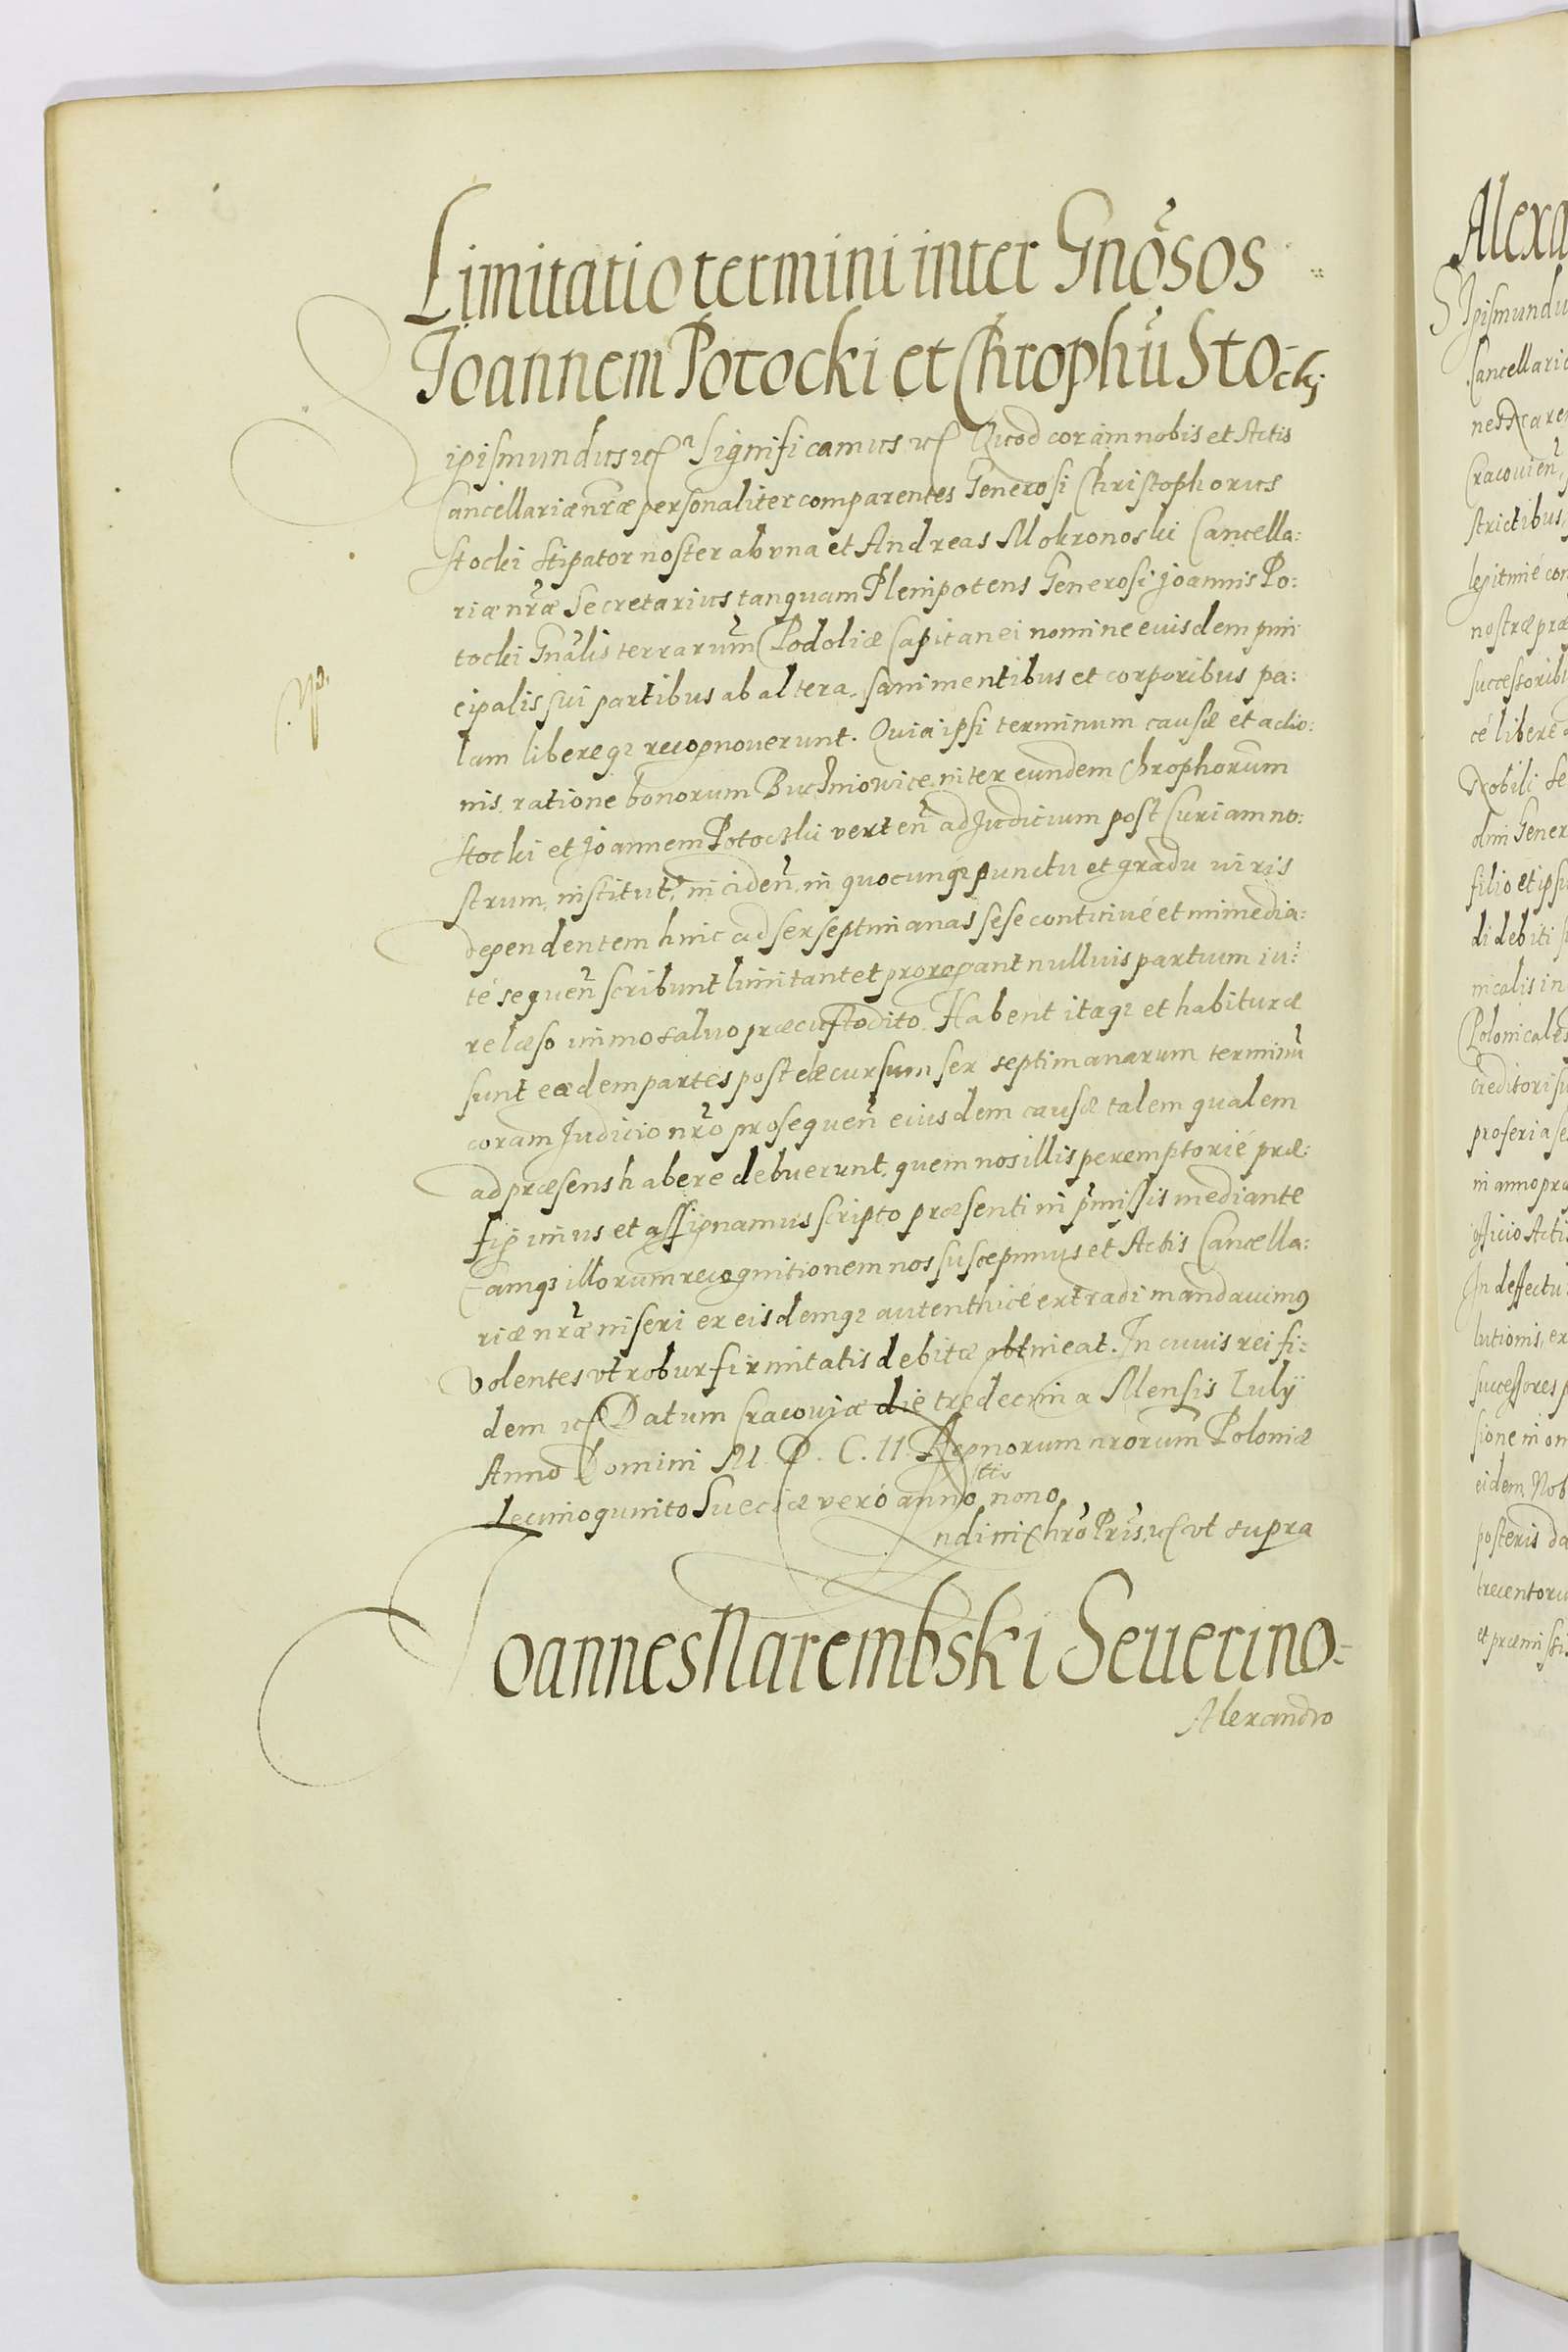 Limitatio termini inter Gnõsos
Ioannem Potocki et Chrophũ Sto-
cki
Sigismundus etc Significamus etc Quod coram nobis et Actis
Cancellariæ nr̃æ personaliter comparentes Generosi Christophorus
Stocki Stipator noster ab vna et Andreas Mokronoski Cancella:
riæ nr̃æ Secretarius tanquam Plenipotens Generosi Joannis Po:
tocki Gnãlis terrarum̃ Podoliæ Capitanei nomine euisdem prin
cipalis sui partibus ab altera, sani mentibus et corporibus pa:
lam libereq₃ recognouerunt. Quia ipsi terminum causæ et actio:
nis ratione bonorum Buchniowice inter eundem Chrophorum̃
Stocki et Joannem Potoczki verten̄ ad Judicium post Curiam no:
strum, institut, inciden̄, in quocunq₃ punctu et gradu iuris
dependentem hinc ad sex septimanas sese continué et immedia:
té sequen̄ scribunt limitant et prorogant nullius partium iu:
re læso immo saluo præcustodito. Habent itaq₃ et habituræ
sunt eædem partes post decursum sex septimanarum terminũ
coram Judicio nr̃o prosequen̄ eiusdem causæ talem qualem
ad præsens habere debuerunt, quem nos illis peremptorié præ:
figimus et assignamus scripto præsenti in p̃missis mediante
Eamq₃ illorum recognitionem nos suscepimus et Actis Cancella:
riæ nr̃æ inseri ex eisdemq₃ autenthicé extradi mandauimus
volentes vt robur firmitatis debitæ obtineat. In cuius rei fi:
dem etc Datum Cracoviæ die tredecima Mensis Iulÿ
Anno Domini M. D. C. II. Regnorum nrorum̃ Poloniæ
decimo quinto Sueciæ veró anno nono
ndi in Chrõ Pris̃, etc vt supra
Ioannes Narembski Seuerino-
Alexandro
Alexa
Sigismundu
Cancellaric
Cracouien̄
strictibus,
legitimé con
nostræ præ
successorib
cé liberé
Nobili Se
olim Gener
filio et ipsi
di debiti
nicalis in
Polonicales
creditori su
proferi a se
in anno præ
officio Actis
In deffectu
lutionis, ex
successores p
sione in om
eidem Nob
posteris da
trecentoru
et præmissi